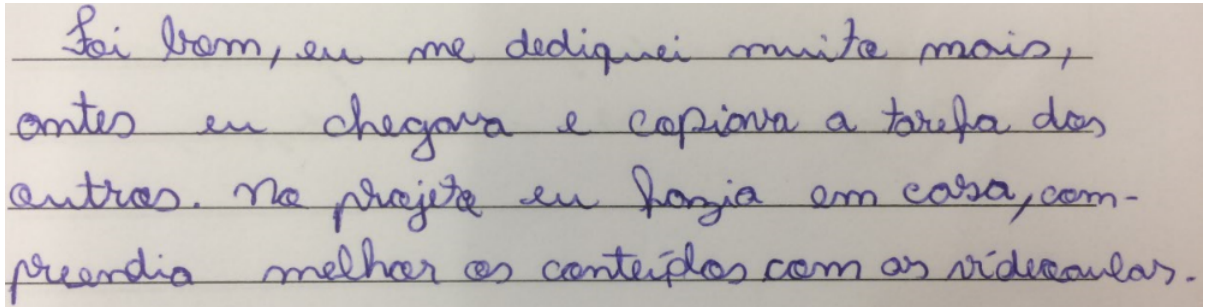 Foi bom, eu me dediquei muito mais,
antes eu chegava e copiava a tarefa dos
outros. No projeto eu fazia em casa, com-
preendia melhor os conteúdos com as videoaulas.